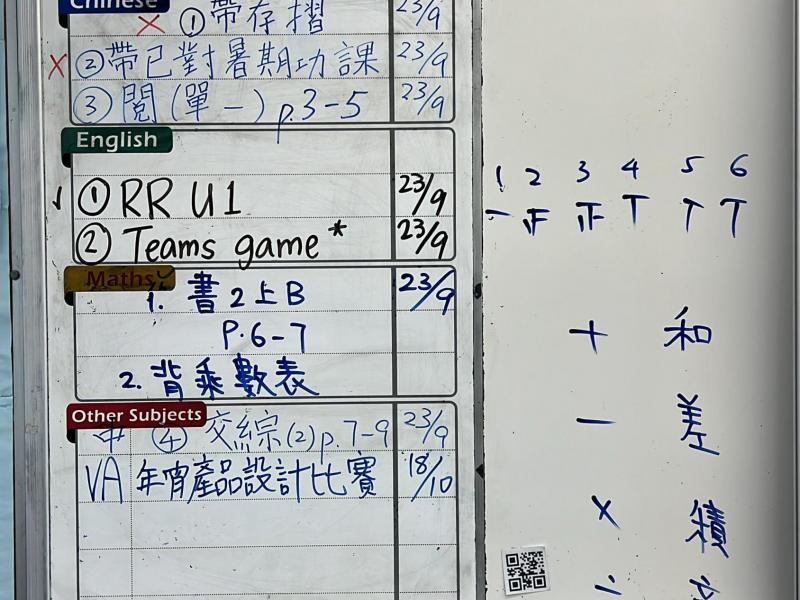 Chinese
① 帶存摺 23/9
② 帶已對暑期功課 23/9
③ 閱(單一) p.3-5 23/9
English
① RR U1 23/9
② Teams game* 23/9
Maths
1. 書2上B 23/9
P.6-7
2. 背乘數表
Other Subjects
中 ④ 交綜(2)p.7-9 23/9
VA 年宵產品設計比賽 18/10
1 2 3 4 5 6
+ 和
- 差
× 積
÷